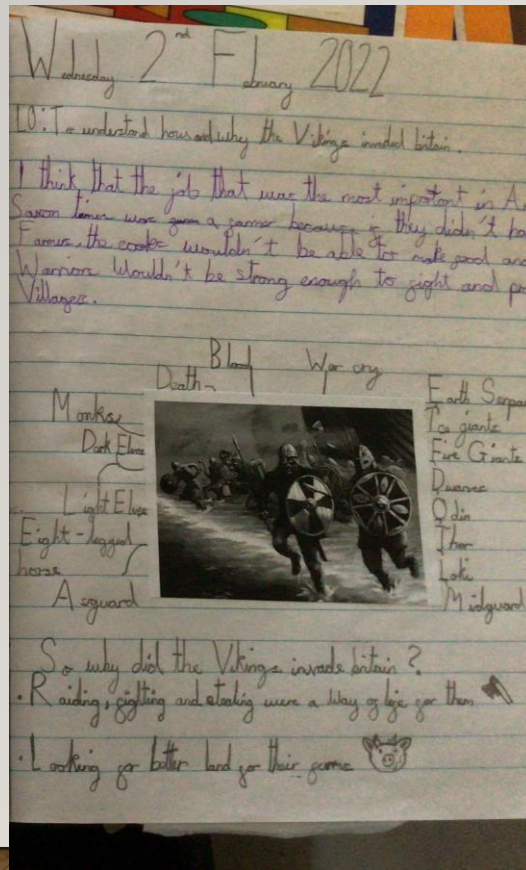 Wednesday 2nd February 2022
LO: To understand how and why the Vikings invaded britain.
I think that the job that was the most important in
Saxon times was a farmer because if they didn't
Farmers, the cooks wouldn't be able to make food and
Warriors Wouldn't be strong enough to fight and
Villages.
Blood
War cry
Death
Monks
Dark Elves
Light Elves
Eight-legged
horse
Asguard
Earth
Ice giants
Fire Giants
Dwarves
Odin
Thor
Loki
Midguard
So why did the Vikings invade britain?
· Raiding, fighting and stealing were a Way of life for them
· Looking for better land for their farms